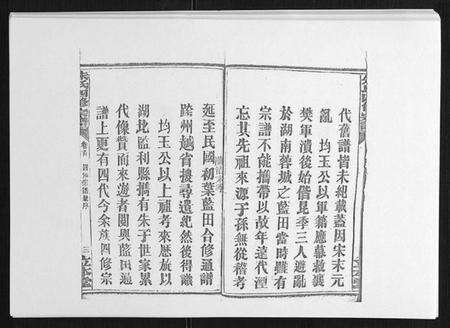 代舊譜皆未細載蓋因宋末元
亂　均玉公以軍籍應募救襄
樊軍潰後始偕昆季三人避亂
於湖南蓉城之藍田當時雖有
宗譜不能攜帶以故年遠代湮
忘其先祖來源子孫無從稽考
延至民國初葉藍田合修通譜
跨州越省搜尋遺紀然後得識
均玉公以上祖考來歷旅以
湖北監利縣攜有朱子世家累
代像贊而來遊者閱與藍田通
譜上更有四代今余族四修宗
朱氏四修宗譜
卷首
三